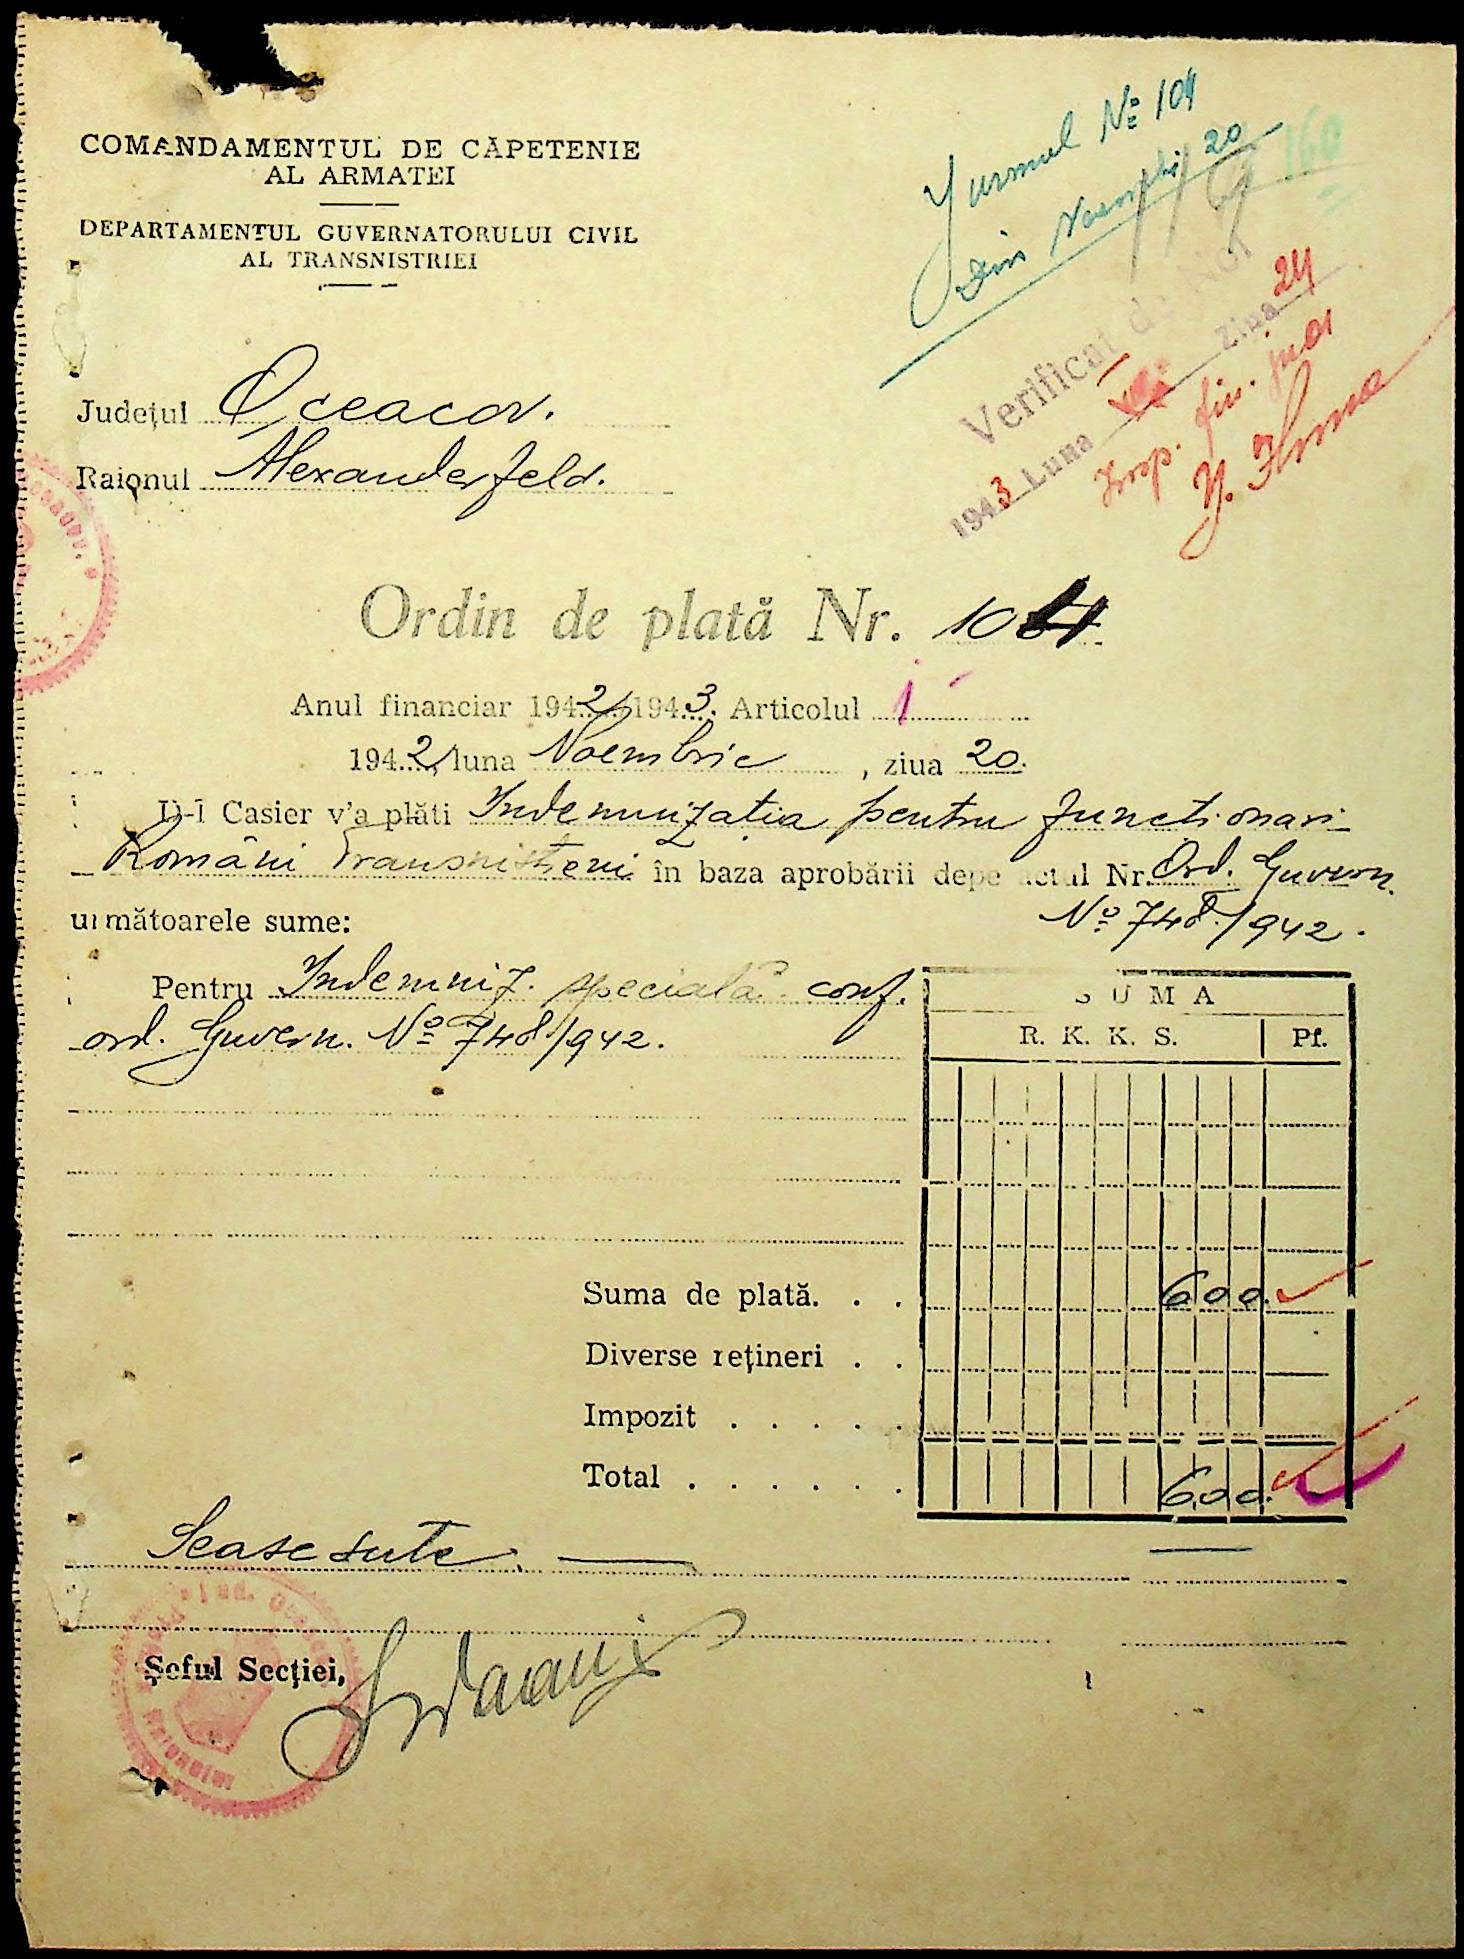 COMANDAMENTUL DE CĂPETENIE
AL ARMATEI
DEPARTAMENTUL GUVERNATORULUI CIVIL
AL TRANSNISTRIEI
Nº 104
din Noembrie 20
160
Verificat de Noi
1943 Luna ziua 24
Insp. fin.
Județul Oceacov.
Raionul Alexanderfeld.
Ordin de plată Nr. 104
Anul financiar 1942/1943. Articolul 1
1942, luna Noembrie, ziua 20.
D-l Casier v'a plăti Indemnizatia pentru functionari
Români Transnistreni în baza aprobării depe actul Nr. Ord. Guvern.
următoarele sume: Nº 748/942.
Pentru Indemniz. specială conf.
ord. Guvern. Nº 748/942.
SUMA
R. K. K. S. Pf.
Suma de plată. . . 600.
Diverse rețineri . .
Impozit . . . . .
Total . . . . . . 600.
Sease sute.
Șeful Secției,